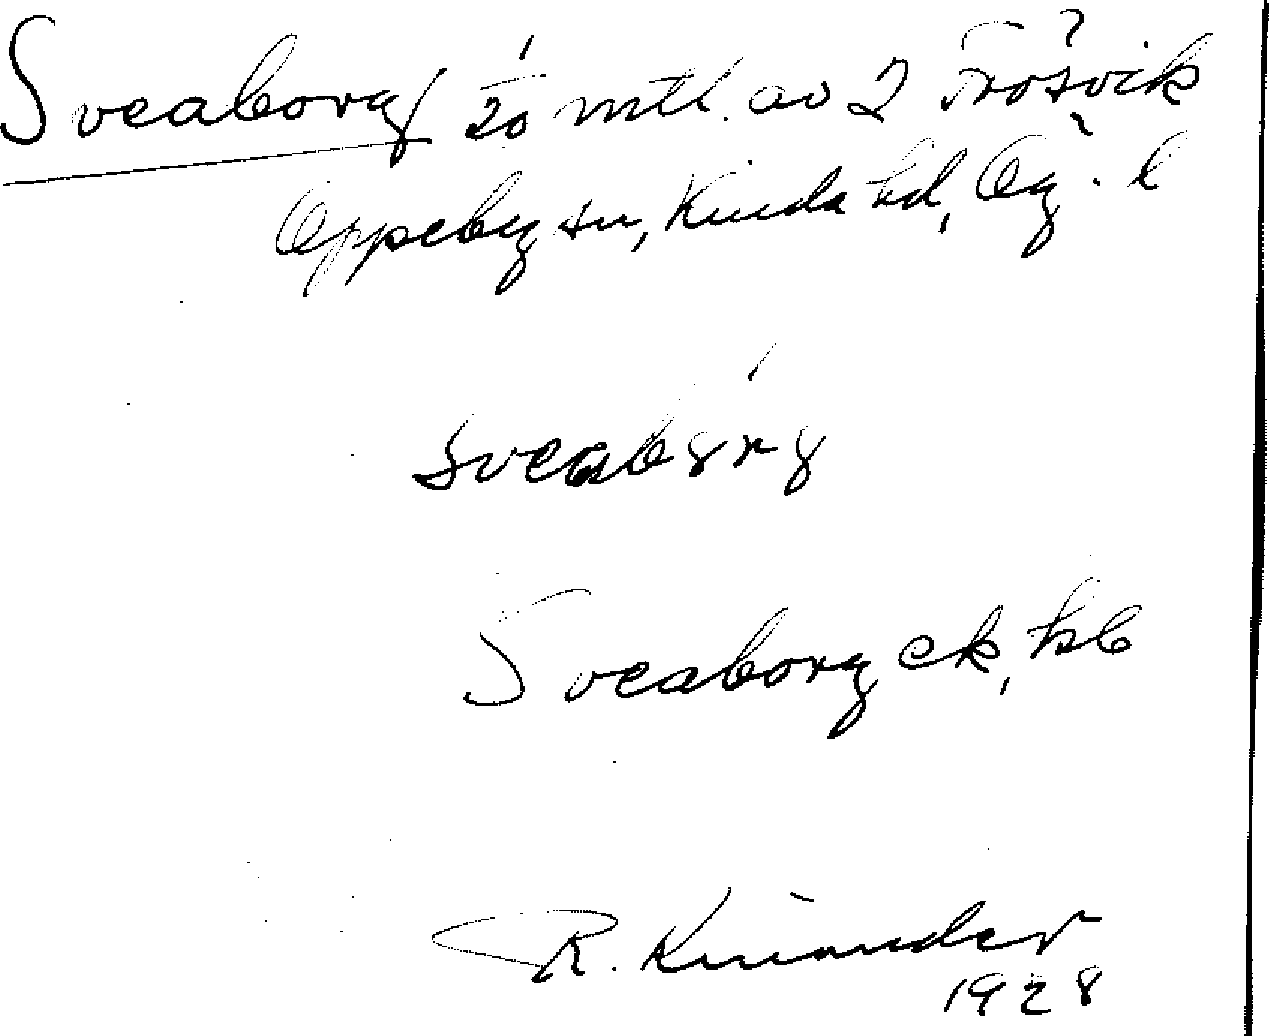 Sveaborg 1/20 mtl. av 2 Trösvik
Oppeby sn, Kinda hd, Ög. l
sveabårg
Sveaborg ek, kb
R. Kinander
1928